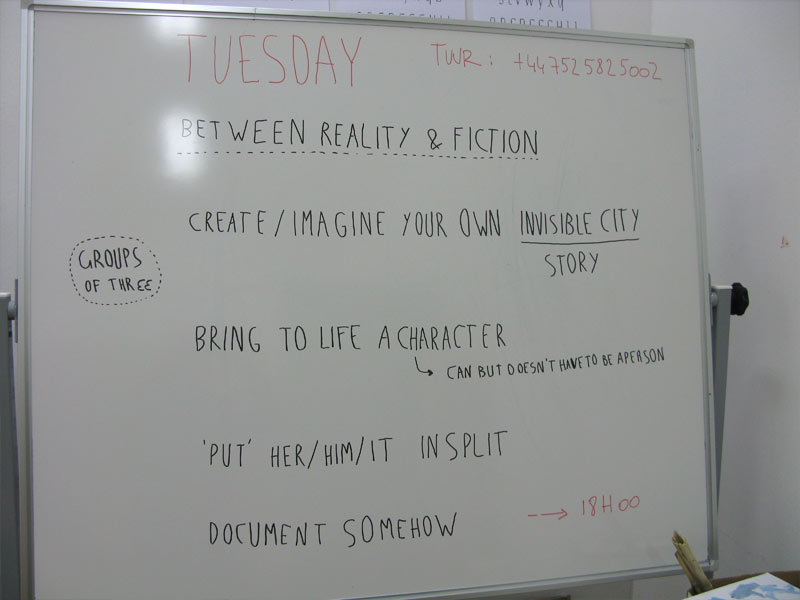 TUESDAY
TWR: +447525825002
BETWEEN REALITY & FICTION
CREATE/IMAGINE YOUR OWN INVISIBLE CITY
STORY
GROUPS
OF THREE
BRING TO LIFE A CHARACTER
CAN BUT DOESN'T HAVE TO BE A PERSON
'PUT' HER/HIM/IT IN SPLIT
DOCUMENT SOMEHOW --→ 18H00